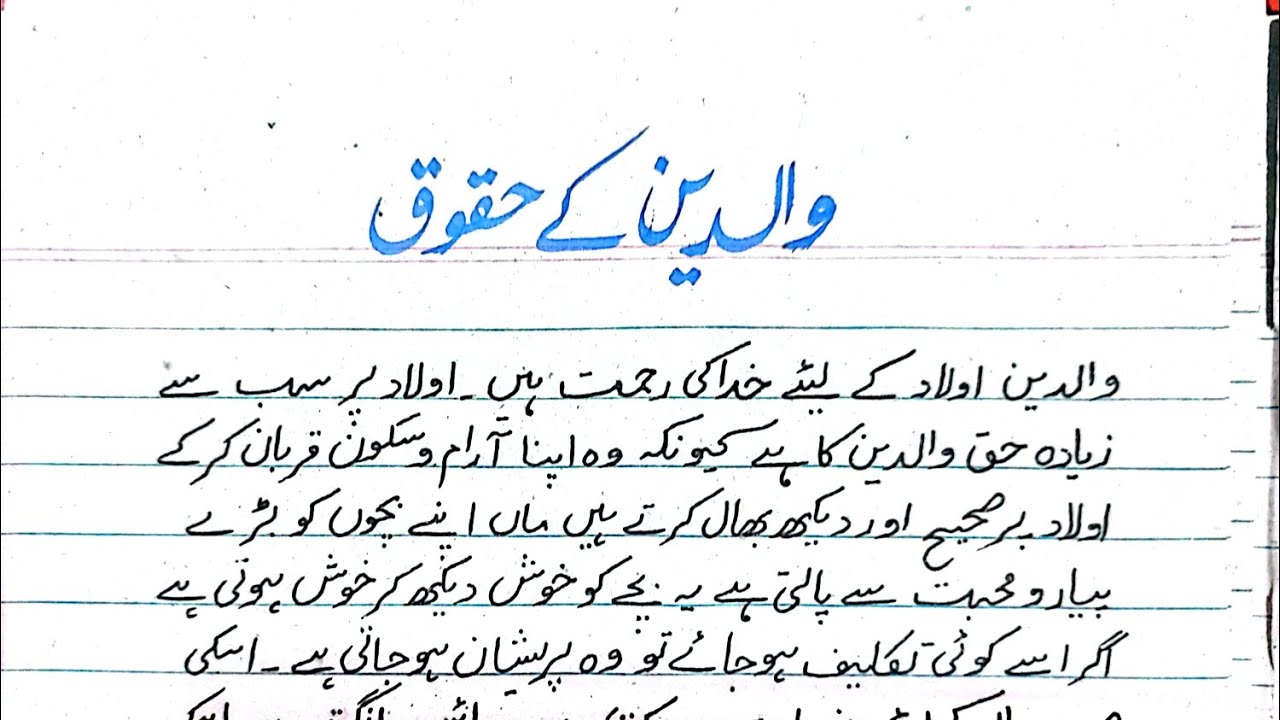 والدین کے حقوق
والدین اولاد کے لیئے خدا کی رحمت ہیں۔ اولاد پر سب سے
زیادہ حق والدین کا ہے کیونکہ وہ اپنا آرام و سکون قربان کرکے
اولاد پر صحیح اور دیکھ بھال کرتے ہیں ماں اپنے بچوں کو بڑے
پیار و محبت سے پالتی ہے یہ بچے کو خوش دیکھ کر خوش ہوتی ہے
اگر اسے کوئی تکلیف ہوجائے تو وہ پریشان ہوجاتی ہے۔ اسکی